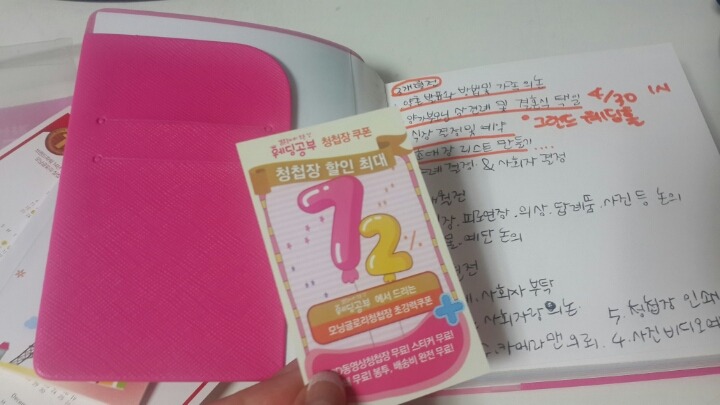 웨딩공부 청첩장 쿠폰
청첩장 할인 최대
72%
웨딩공부 에서 드리는
모닝글로리청첩장 초강력쿠폰
+
동영상청첩장 무료! 스티커 무료!
무료! 봉투, 배송비 완전 무료!
방법 및 기초 의논
양가부모님 상견례 및 결혼식 택일
4/30 1시
그랜드 웨딩홀
식장 결정 및 예약
리스트 만들기 ....
결정 & 사회자 결정
월전
피로연장. 의상. 답례품. 사진 등 논의
예단 논의
월전
사회자 부탁
사회자랑 의논
5. 청첩장 인쇄
카메라맨 의뢰. 4. 사진 비디오